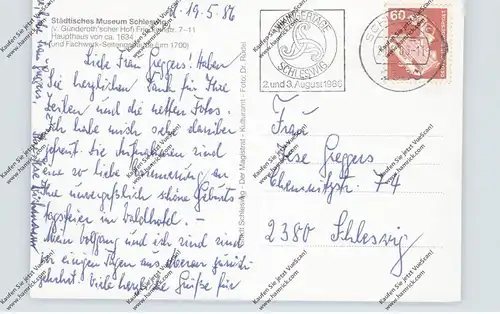 19.5.86
Städtisches Museum Schleswig
v. Günderoth'scher Hof, Friedrichstr. 7-11
Haupthaus von ca. 1634
(und Fachwerk-Seitengebäude um 1700)
Liebe Frau Greggers! Haben
Sie herzlichen Dank für Ihre
Zeilen und die netten Fotos.
Ich habe mich sehr darüber
gefreut. Die Aufnahmen sind
eine so liebe Erinnerung an
Ihre unvergeßlich schöne Geburts
tagsfeier im Waldhotel. –
Mein Wolfgang und ich sind sind
vor einigen Tagen aus zurück-
gekehrt. Viele herzliche Grüße für
Stadt Schleswig - Der Magistrat - Kulturamt - Foto: Dr. Rüdel
WIKINGERTAGE
SCHLESWIG
2.und 3.August 1986
60
DEUTSCHE BUNDESPOST
Frau
Ilse Greggers
Chemnitzstr. 74
2380 Schleswig
Kaufen Sie jetzt VueScan!
www.hamrick.com